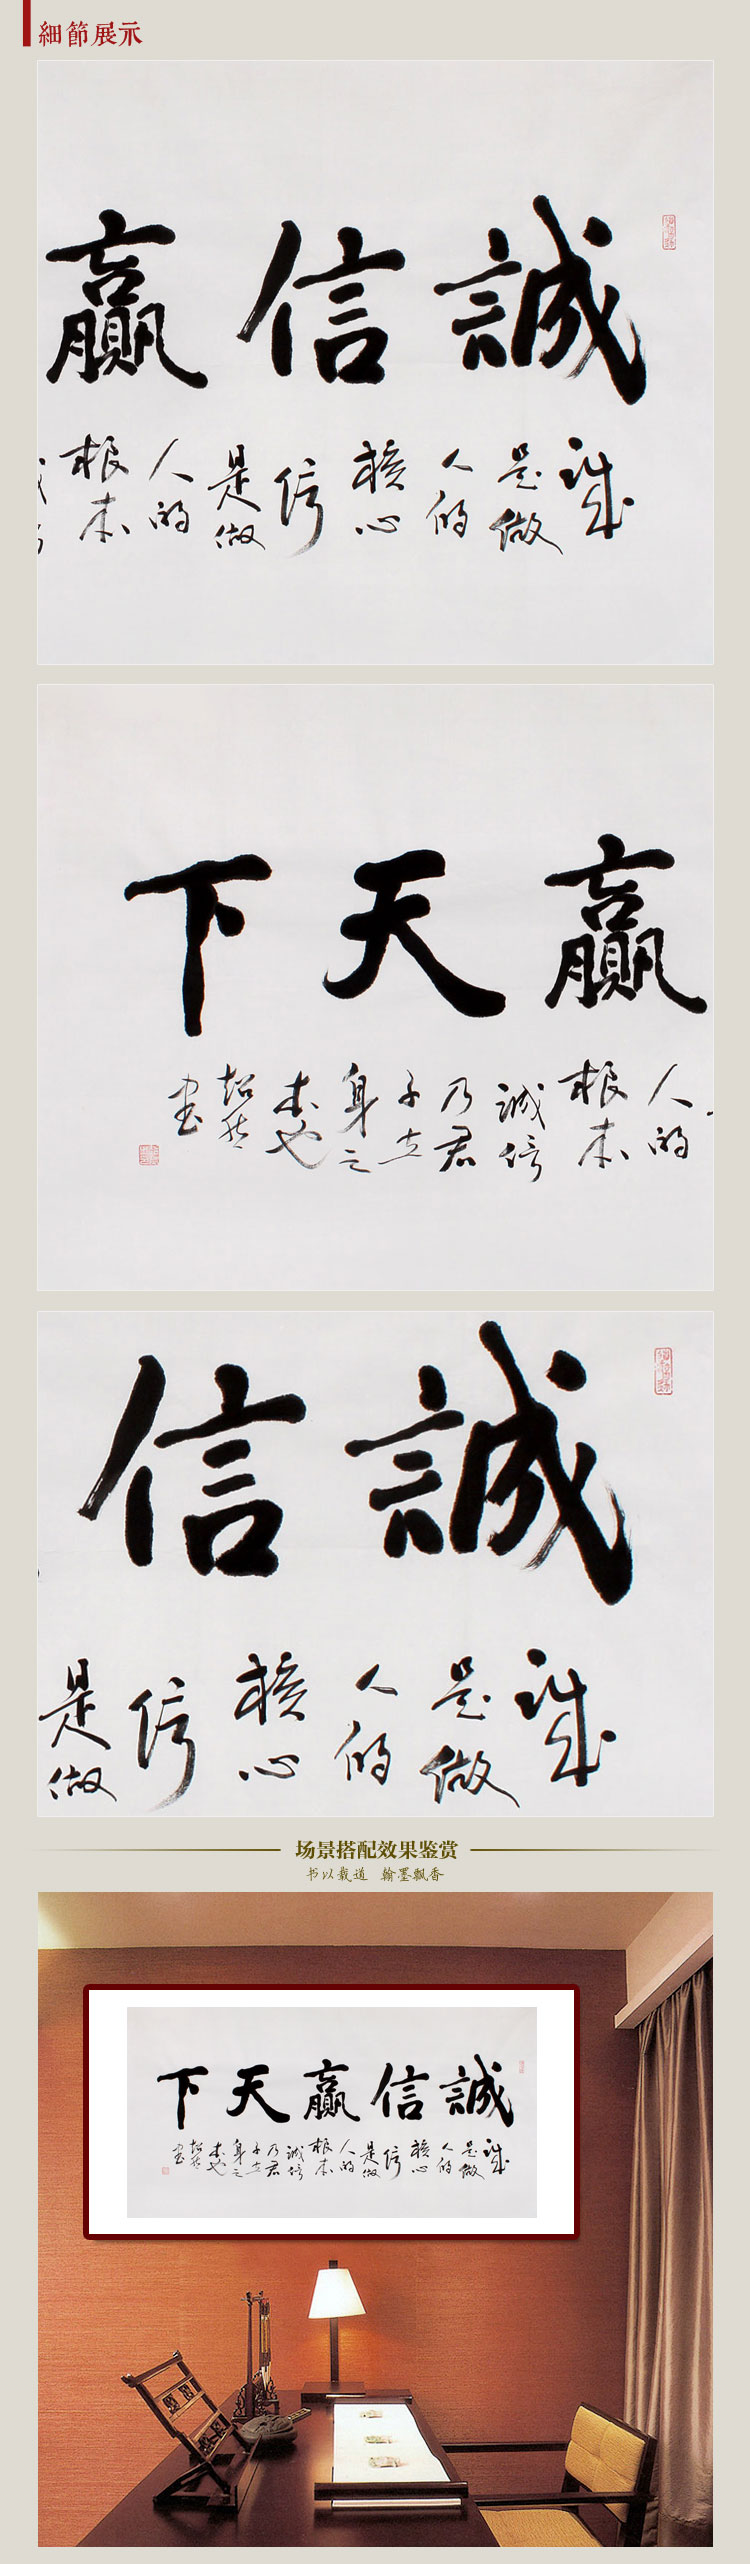 細節展示
誠信贏
诚是做人的核心信是做人的根本
贏天下
人的根本誠信乃君子立身之本也
书
誠信
诚是做人的核心信是做
场景搭配效果鉴赏
书以载道 翰墨飘香
誠信贏天下
诚是做人的核心信是做人的根本誠信乃君子立身之本也
书